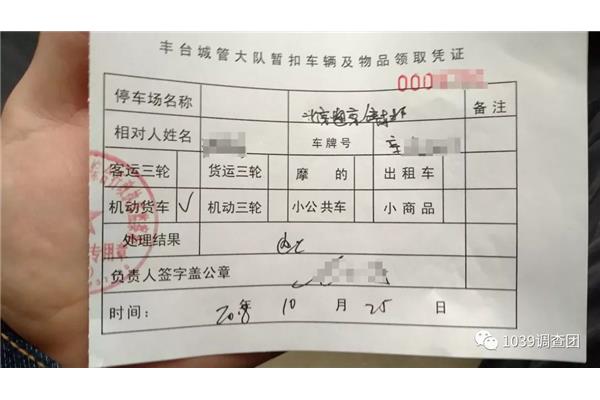 丰台城管大队暂扣车辆及物品领取凭证
000
停车场名称 备注
相对人姓名 车牌号 京
客运三轮 货运三轮 摩的 出租车
机动货车 √ 机动三轮 小公共车 小商品
处理结果
负责人签字盖公章
时间: 2018年 10 月 25 日
专用章
1039调查团